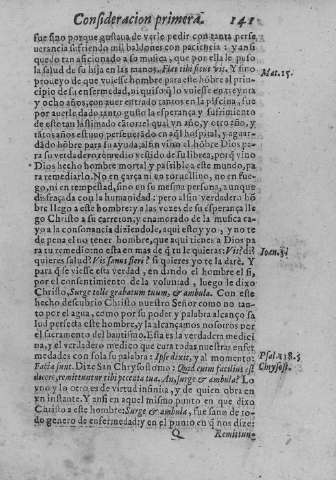 Consideracion primera. 141
fue sino porque gustaua de verle pedir con tanta perse
uerancia sufriendo mil baldones con paciencia: y ansi
quedo tan aficionado a su musica, que por ella le puso
la salud de su hija en las manos. Fiat tibi sicut vis. Y sino
proueyo de que vuiesse hombre para este hõbre al prin-
cipio de su enfermedad, ni quiso q̃ lo vuiesse en treynta
y ocho años, con auer entrado tantos en la piscina, fue
por auerle dado tanto gusto la esperança y sufrimiento
de este tan lastimado
tãtos años estuuo perseuerando en aq̃l hospital, y aguar-
dãdo hõbre para su ayuda, al fin vino el hõbre Dios pa-
ra su verdadero remedio vestido de su librea, porq̃ vino
Dios hecho hombre mortal y passible a este mundo, pa
ra remediarlo. No en çarça ni en toruellino, no en fue-
go, ni en tempestad, sino en su mesma persona, aunque
disfraçada con la humanidad: pero al fin verdadero hõ
bre llego a este hombre: y a las vezes de su esperança lle
go Christo a su carreton, y enamorado de la musica ca-
yo a la consonancia diziendole, aqui estoy yo, y no
te de pena el no tener hombre, que aqui tienes a Dios pa
ra tu remedio: no esta en mas de q̃ tu le quieras: Vis? dí
quieres salud? Vis sanus fieri? si quieres yo te la darè. Y
para q̃ se viesse esta verdad, en dando el hombre el si,
por el consentimiento de la voluntad, luego le dixo
Christo, Surge tolle grabatum tuum, & ambula. Con este
hecho descubrio Christo nuestro Señor como no tan-
to por el agua, como por su poder y palabra alcanço sa
lud perfecta este hombre, y la alcançamos nosotros por
el sacramento del baptismo. Esta es la verdadera medici
na, y el verdadero medico que cura todas nuestras enfer
medades con sola su palabra: Ipse dixit, y al momento:
Facta sunt. Dize San Chrysostomo: Quid enim facilius est
dicere, remittuntur tibi peccata tua. An, surge & ambula? Lo
vno y lo otro es de virtud infinita, y de quien obra en
vn instante. Y ansi en aquel mismo punto en que dixo
Christo a este hombre: Surge & ambula, fue sano de to-
do genero de enfermedad: y en el punto en q̃ nos dize:
Q Remittun-
Mat. 15.
Ioan. 5.
Psal. 138. 5
Chrysost.